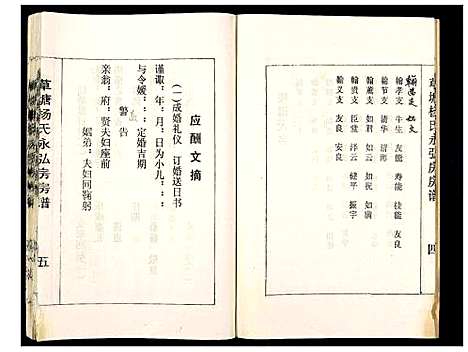 草塘杨氏永弘房房谱
四
翰孝支 牛生 友能 寿能 技能 友良
翰节支 清华 如云
翰薰支 如君 如祝 如朝
翰善支 泽云 正云 健平 振宇
翰义支 友良 友安 友南
应酬文摘
(一)成婚礼仪 订婚送日书
谨诹·年·月·日为小儿···
与令媛···定婚吉期
警告
亲翁·府·贤夫妇座前
姻弟·夫妇同鞠躬
草塘杨氏永弘房房谱
五